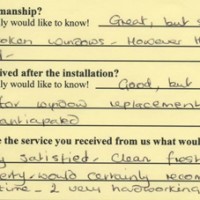 manship?
ly would like to know!  Great, but s
oken windows - However H
d.
ived after the installation?
ly would like to know!  Good, but
for window replacement
antiapated
e the service you received from us what woul
y satisfied - Clean fresh
erty would certainly recom
time - 2 very hardworking